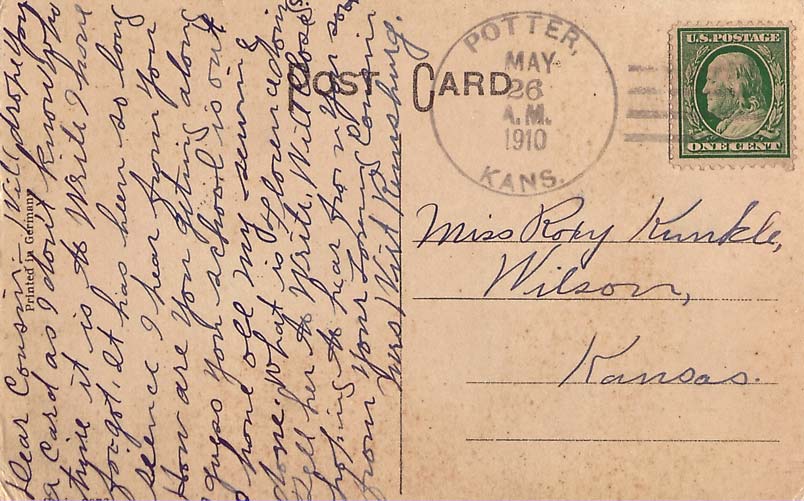 POST CARD
POTTER,
MAY
26
A.M.
1910
KANS.
U.S. POSTAGE
ONE CENT
Miss Roxy Kunkle,
Wilson,
Kansas.
Printed in Germany
Dear Cousin. Will drope you
a Card as I don't know who
time it is to Write I have
forgot. It has been so long
seence I hear from you
How are you getting along
I guess your school is out
I hone all my sewing
done. What is Florence doing
Tell her to Write. Will close
hoping to hear from you soon
from your Loving Cousin
Mrs